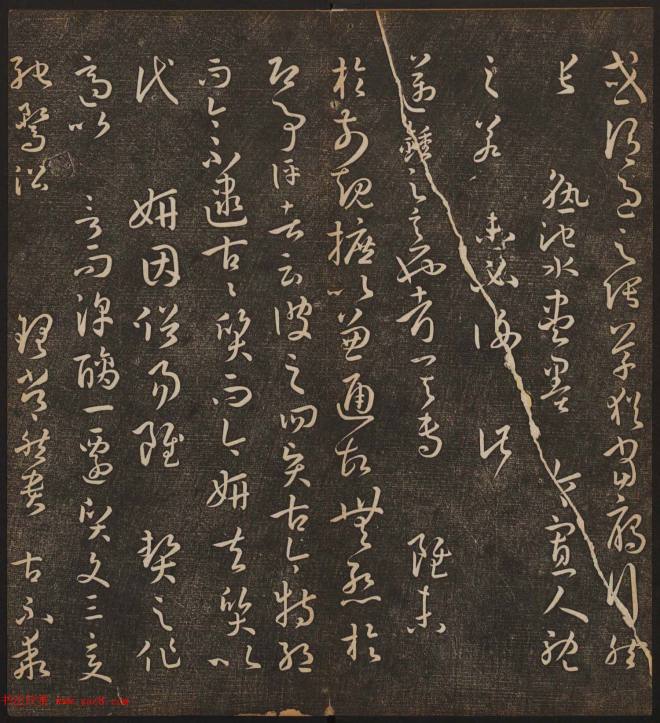 或謂過之張草猶當雁行然
張 熟池水盡墨 令寡人耽
之若 未必謝 此
邁鍾之意也考其專 雖未
於前規摭以兼通故無慚於
即事評者云彼之四賢古今特絕
而今不逮古古質而今妍夫質以
代 妍因俗易雖 契之作
適以 言而淳醨一遷質文三變
馳鶩沿 物理常然貴 古不乖
书法欣赏 www.yac8.com